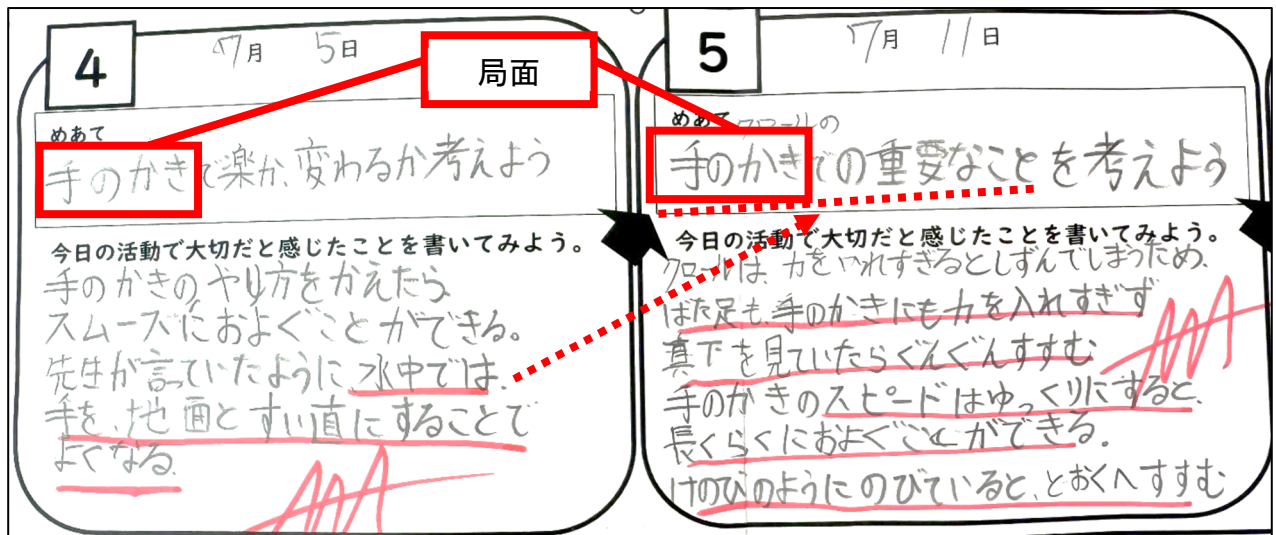 4
7月 5日
局面
めあて
手のかきで楽か、変わるか考えよう
今日の活動で大切だと感じたことを書いてみよう。
手のかきのやり方をかえたら
スムーズにおよぐことができる。
先生が言っていたように水中では
手を、地面とすい直にすることで
よくなる。
5
7月 11日
めあて
クロールの
手のかきでの重要なことを考えよう
今日の活動で大切だと感じたことを書いてみよう。
クロールは、力をいれすぎるとしずんでしまうため、
ばた足も、手のかきにも力を入れすぎず
真下を見ていたらぐんぐんすすむ
手のかきのスピードはゆっくりにすると、
長くらくにおよぐことができる。
けのびのようにのびていると、とおくへすすむ